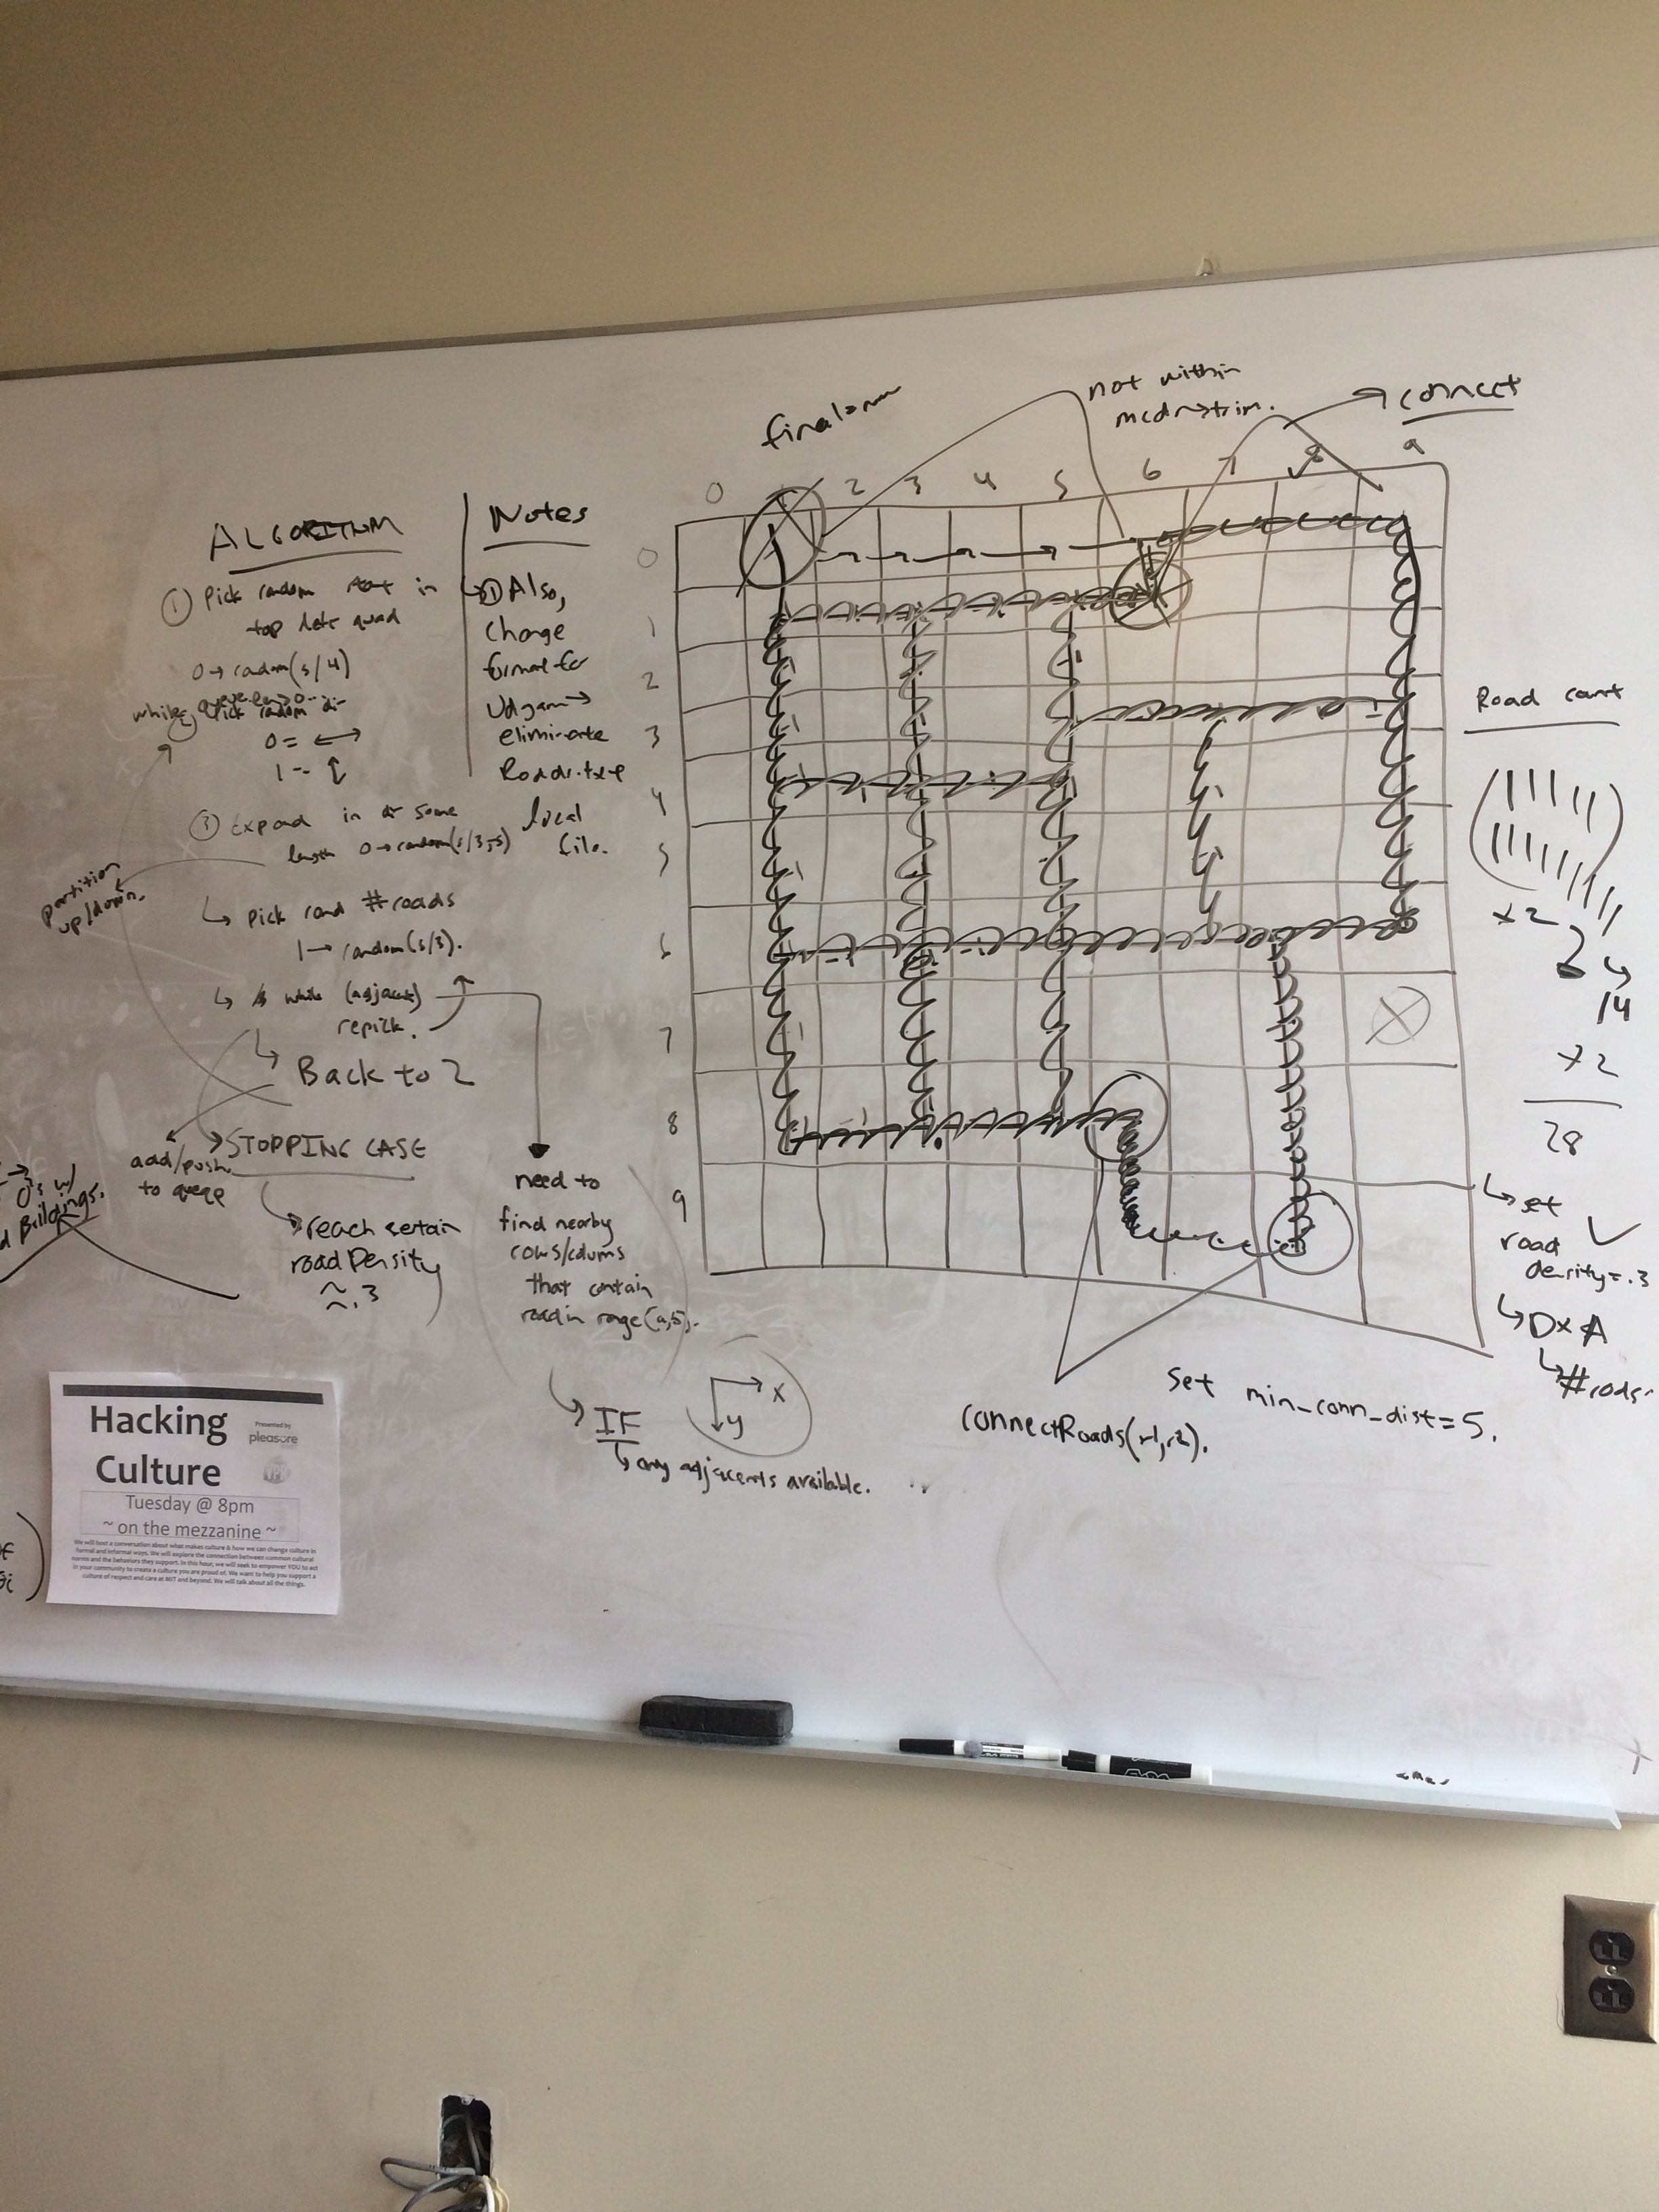 final
not within
mcd→trim.
connect
ALGORITHM
① Pick random start in
top left quad
0→random(s/4)
while queue.len>0
② Pick random dir
0= ↔
1-- ↕
③ Expand in dr some
length 0→random(s/3,s)
↳ pick rand #roads
1→random(s/3).
↳ while (adjacent)
repick.
↳ Back to 2
partition
up/down.
add/push
to queue
STOPPING CASE
reach certain
road Density
≈ .3
0's w/
Notes
① Also,
Change
format for
→
eliminate
local
file.
need to
find nearby
rows/colums
that contain
road in range(a,b).
↳ IF
↳ any adjacents available.
x
y
0 2 3 4 5 6 7 8 9
0
1
2
3
4
5
6
7
8
9
connectRoads(r1,r2).
Set min_conn_dist=5.
Road count
x2
14
x2
28
↳ set
road
density=.3
↳ D x A
↳ #rods.
Hacking
Culture
Presented by
pleasure
Tuesday @ 8pm
~ on the mezzanine ~
We will host a conversation about what makes culture & how we can change culture in
formal and informal ways. We will explore the connection between common cultural
norms and the behaviors they support. In this hour, we will seek to empower YOU to act
in your community to create a culture you are proud of. We want to help you support a
culture of respect and care at MIT and beyond. We will talk about all the things.
EXPO